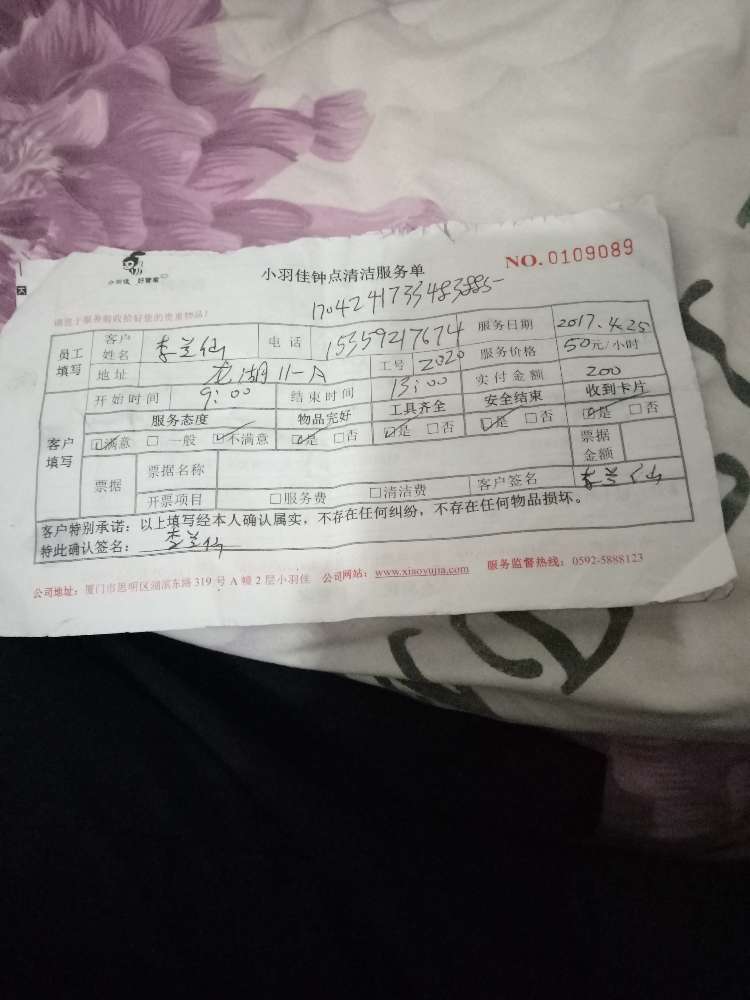 小羽佳 好管家
小羽佳钟点清洁服务单
NO.0109089
请您于服务前收拾好您的贵重物品!
1704241735483885
员工填写 客户姓名 李兰仙 电话 15359217674 服务日期 2017.4.25
地址 龙湖11-A 工号 2020 服务价格 50元/小时
客户填写 开始时间 9:00 结束时间 13:00 实付金额 200
服务态度 物品完好 工具齐全 安全结束 收到卡片
☑满意 □一般 ☑不满意 ☑是 □否 ☑是 □否 ☑是 □否 ☑是 □否
票据 票据名称 票据金额
开票项目 □服务费 □清洁费 客户签名 李兰仙
客户特别承诺：以上填写经本人确认属实，不存在任何纠纷，不存在任何物品损坏。
特此确认签名：李兰仙
公司地址：厦门市思明区湖滨东路 319 号 A 幢 2 层小羽佳 公司网站：www.xiaoyujia.com 服务监督热线：0592-5888123